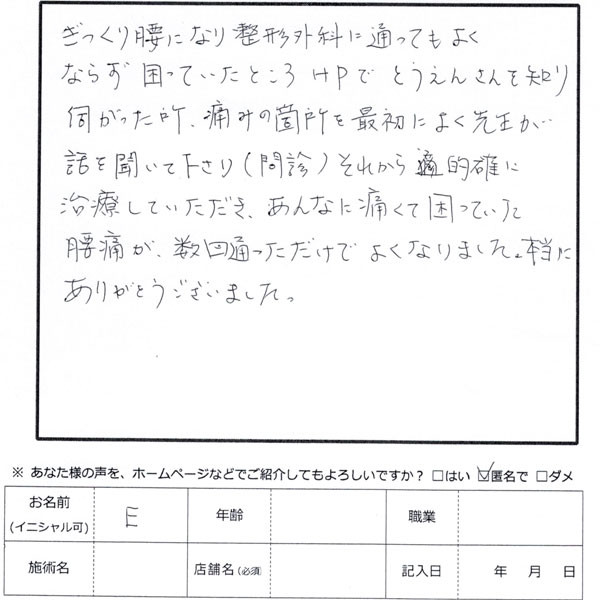 ぎっくり腰になり整形外科に通ってもよく
ならず 困っていたところ HPで とうえんさんを知り
伺がった所、痛みの箇所を最初によく先生が
話を聞いて下さり(問診)それから 的確に
治療していただき、あんなに痛くて困っていた
腰痛が、数回通っただけで よくなりました。本当に
ありがとうございました。
※ あなた様の声を、ホームページなどでご紹介してもよろしいですか? □はい ☑匿名で □ダメ
お名前 (イニシャル可) E 年齢 職業
施術名 店舗名(必須) 記入日 年 月 日